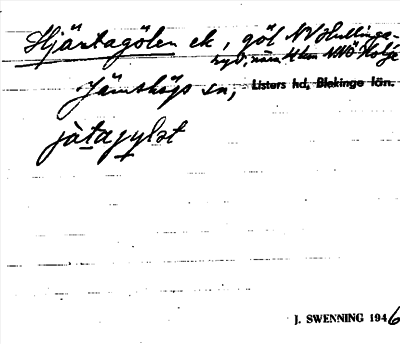 Hjärtagölen ek, göl NV Hullinga-
ryd, näm 4 km NNO Holje
Jämshögs sn, Listers hd, Blekinge län.
jätagylst
J. SWENNING 1946